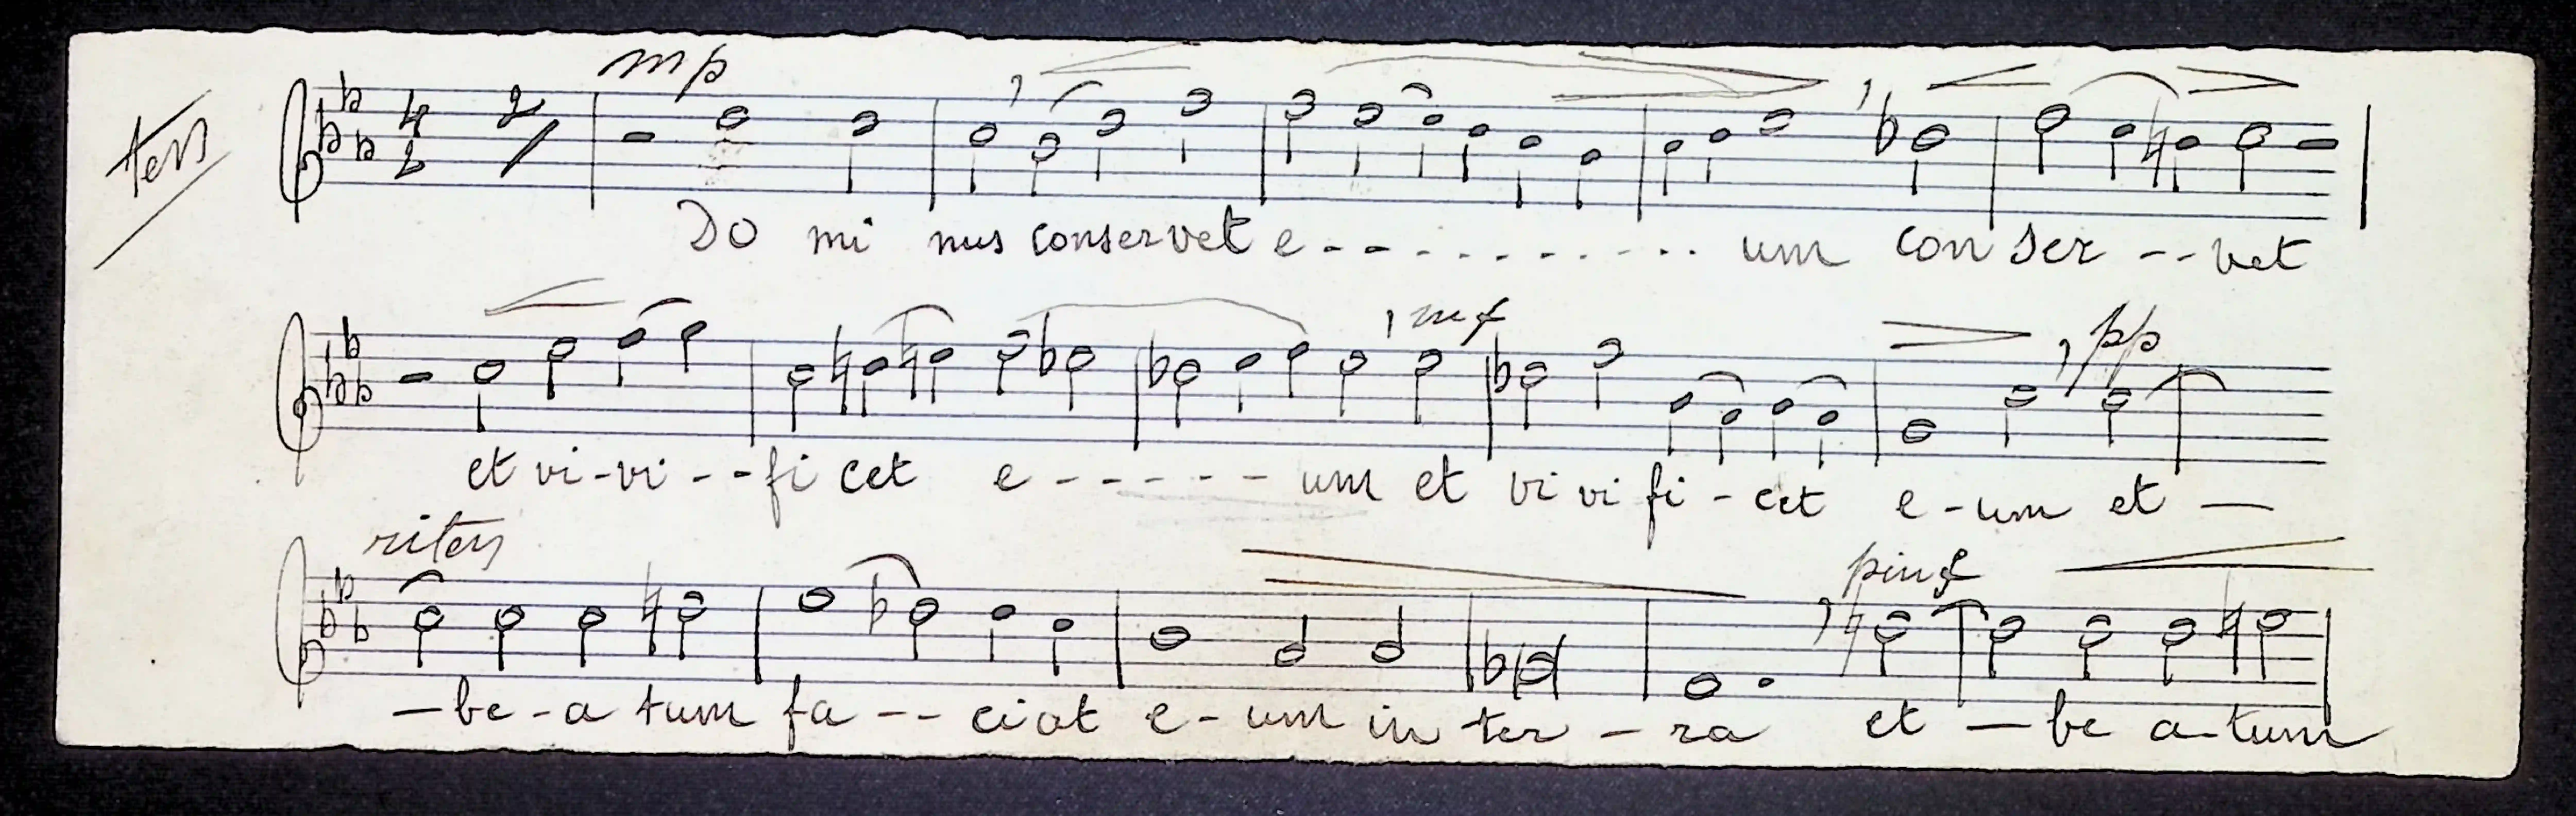 ten
mp
4 2
2
Do mi nus conservet e - - - - - - - - - - um con ser - - vet
mf pp
et vi - vi - - fi cet e - - - - - - um et vi vi fi - cet e - um et —
riten
— be - a tum fa - - ciat e - um in ter - ra et — be a - tum